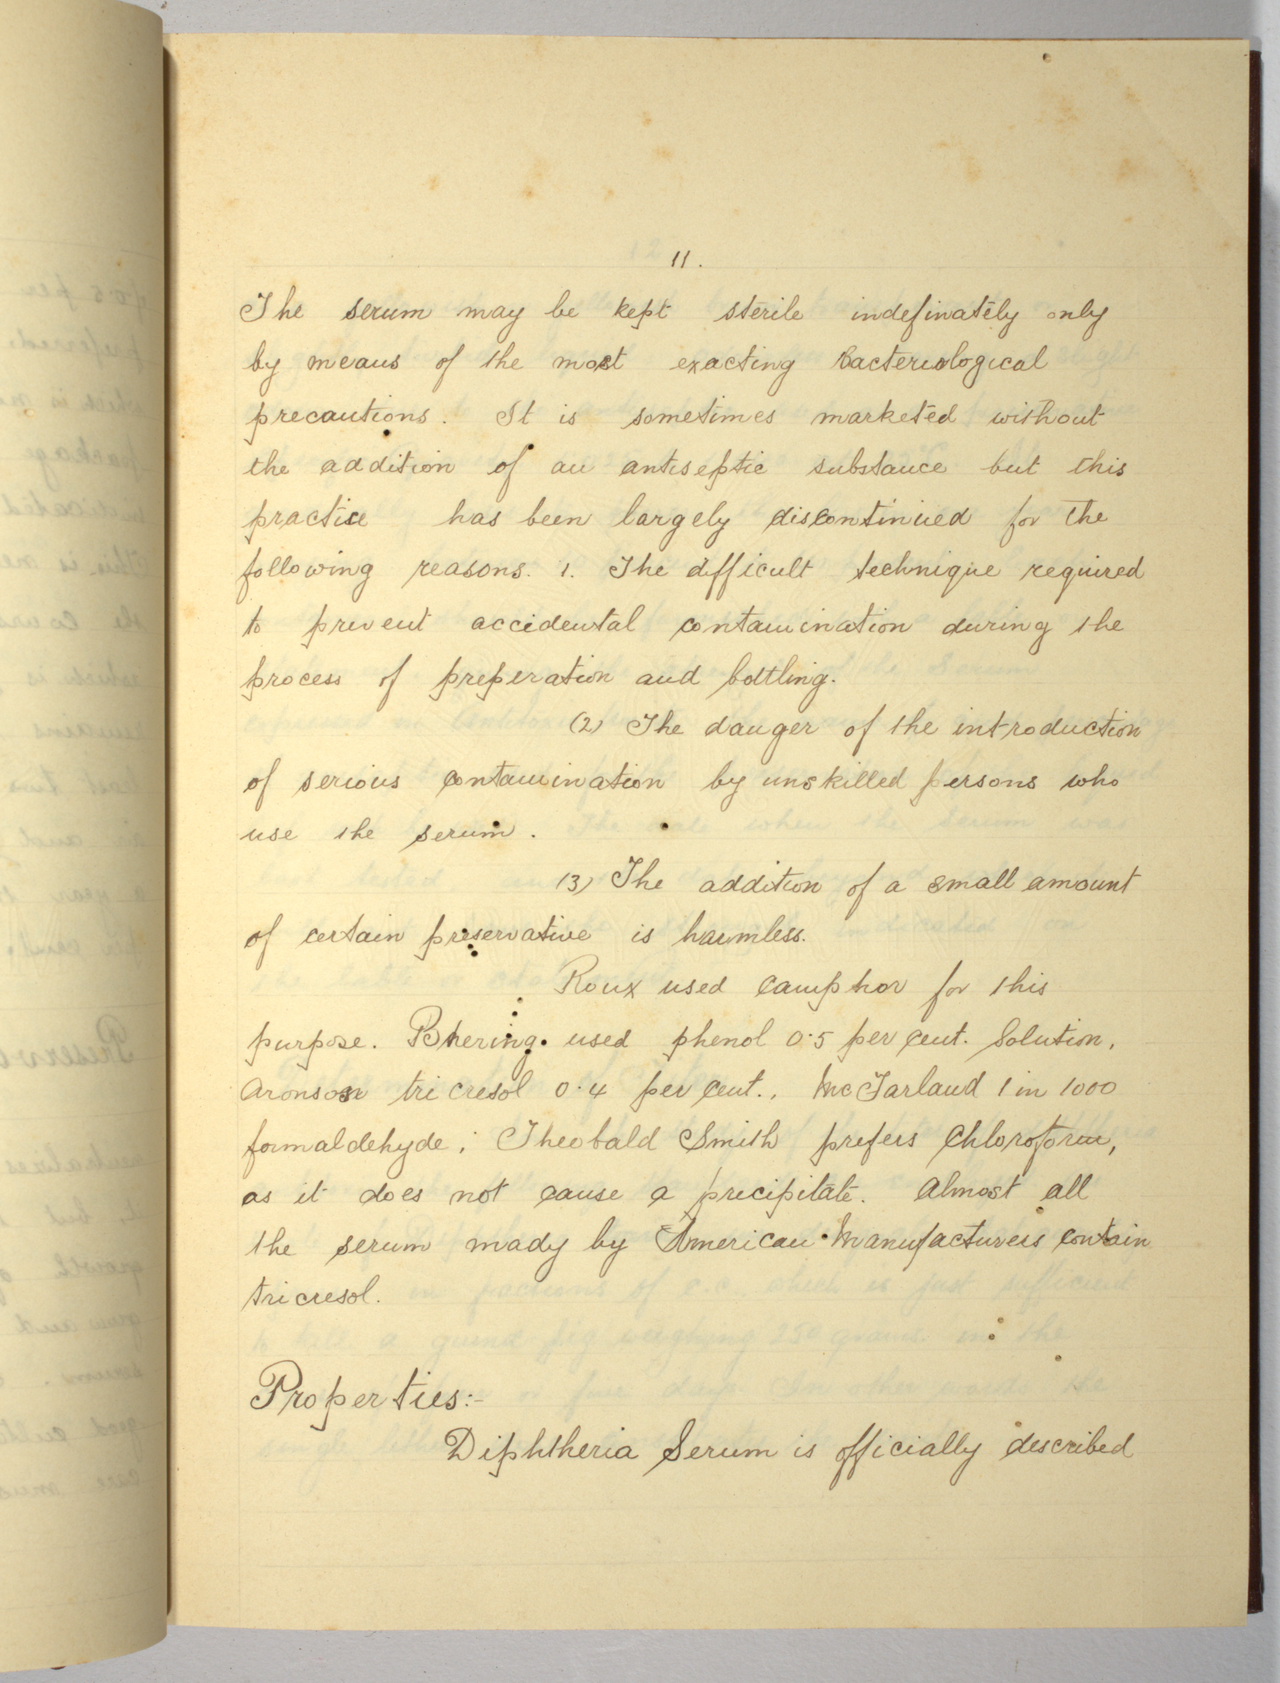 11.
The serum may be kept sterile indefinately only
by means of the most exacting Bacteriological
precautions. It is sometimes marketed without
the addition of an antiseptic substance but this
practise has been largely discontinued for the
following reasons. 1. The difficult technique required
to prevent accidental contamination during the
process of preperation and bottling.
(2) The danger of the introduction
of serious contamination by unskilled persons who
use the serum.
(3) The addition of a small amount
of certain preservative is harmless.
Roux used camphor for this
purpose. Bhering. used phenol 0.5 per cent. Solution,
Aronson tricresol 0.4 per cent., McFarland 1 in 1000
formaldehyde; Theobald Smith prefers Chloroform,
as it does not cause a precipitate. Almost all
the serum mady by American Manufacturers contain
tricresol.
Properties:-
Diphtheria Serum is officially described